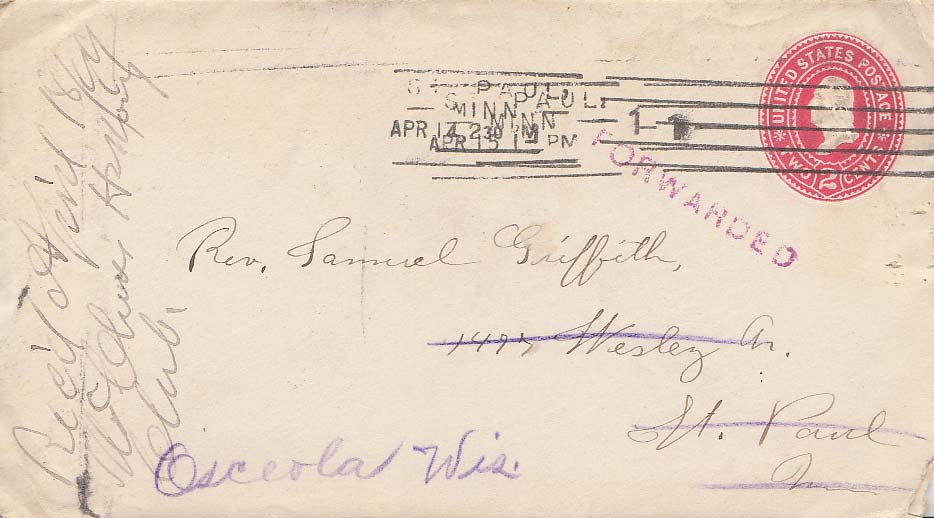 UNITED STATES POSTAGE
TWO 2 CENTS
ST. PAUL,
MINN
APR 14 230 PM
ST. PAUL.
MINN
APR 15 1- PM
1
1
FORWARDED
Rev. Samuel Griffith,
Wesley Av.
St. Paul
Minn
Osceola Wis.
Rec'd at